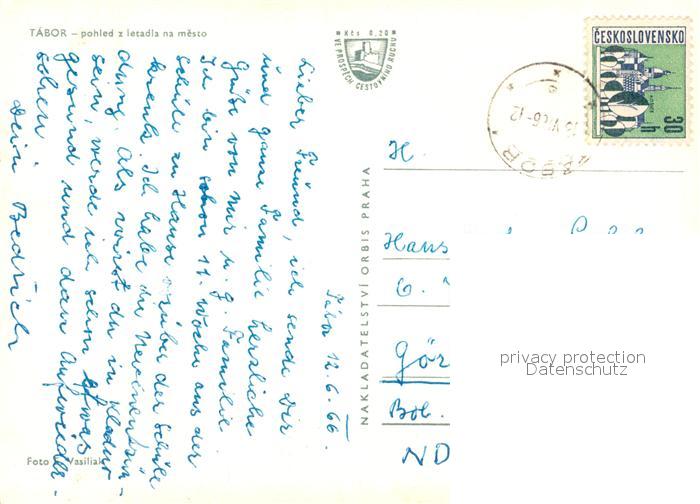 TÁBOR – pohled z letadla na město
Kčs 0,20
VE PROSPĚCH CESTOVNÍHO RUCHU
ČESKOSLOVENSKO
30
h
Tábor 12.6.66.
Lieber Freund, ich sende Dir
und ganze Familie herzliche
Grüße von mir u. g. Familie.
Ich bin schon 11. Woche aus der
Schule zu Hause
krank. Ich habe die
dung. Als wirst du in
sein, werde ich schon etwas
gesund und dan Aufwieder-
sehen!
Dein Bedřich
NAKLADATELSTVÍ ORBIS PRAHA
H.
Hans
6.
Gör
Bob.
ND
privacy protection
Datenschutz
Foto Vasiliak